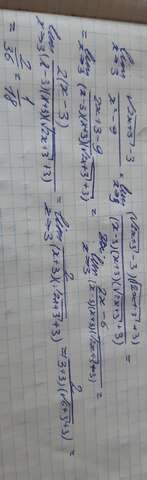 lim x→3 (√(2x+3) - 3)/(x² - 9) = lim x→3 (√(2x+3) - 3)(√(2x+3) + 3)/((x-3)(x+3)(√(2x+3) + 3)) =
= lim x→3 (2x+3-9)/((x-3)(x+3)(√(2x+3)+3)) = lim x→3 (2x-6)/((x-3)(x+3)(√(2x+3)+3)) =
= lim x→3 2(x-3)/((x-3)(x+3)(√(2x+3)+3)) = lim x→3 2/((x+3)(√(2x+3)+3)) = 2/((3+3)(√(6+3)+3)) =
= 2/36 = 1/18